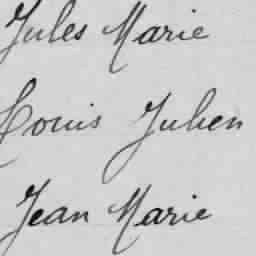 Jules Marie
Louis Julien
Jean Marie